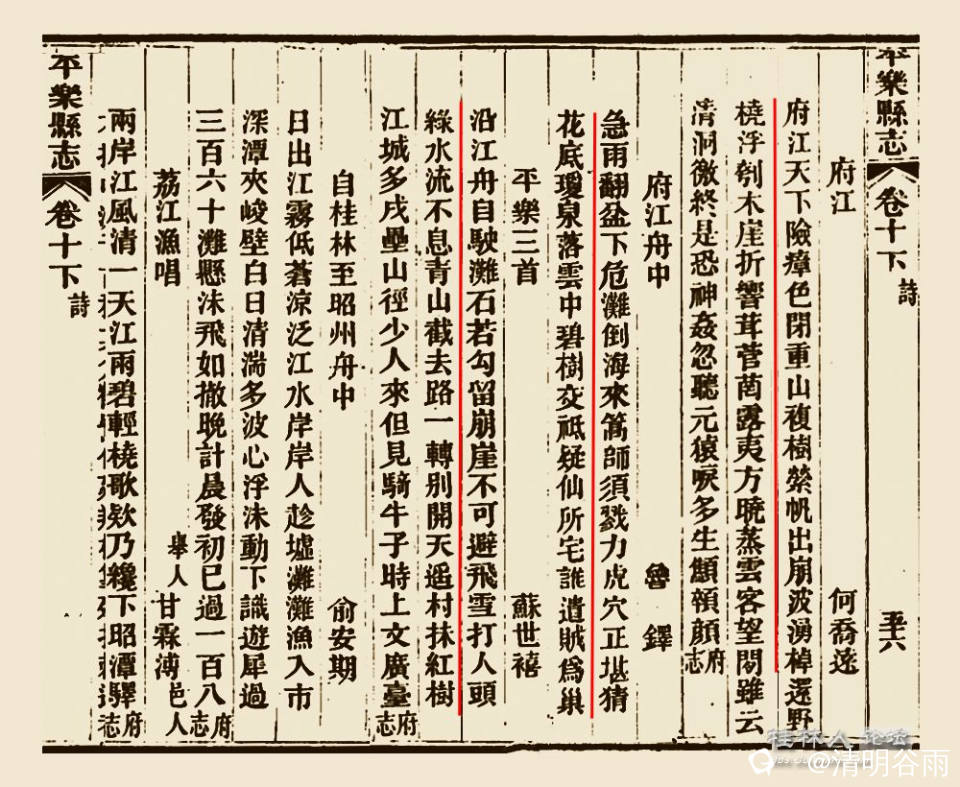 平樂縣志
卷十下
詩
府江
何喬遠
府江天下險瘴色閉重山複樹縈帆出崩波湧棹還野
橈浮刳木崖折響茸菅菌露夷方曉蒸雲客望閒雖云
清洞徹終是恐神姦忽聽元猿唳多生顦顇顏府志
府江舟中
魯鐸
急雨翻盆下危灘倒海來篙師須戮力虎穴正堪猜
花底瓊泉落雲中碧樹交祗疑仙所宅誰遺賊爲巢
平樂三首
蘇世禧
沿江舟自駛灘石若勾留崩崖不可避飛雪打人頭
綠水流不息青山截去路一轉別開天遥村抹紅樹
江城多戍壘山徑少人來但見騎牛子時上文廣臺府志
自桂林至昭州舟中
俞安期
日出江霧低蒼涼泛江水岸岸人趁墟灘灘漁入市
深潭夾峻壁白日清湍多波心浮沫動下識遊犀過
三百六十灘懸沫飛如撒晚計晨發初已過一百八府志
荔江漁唱
舉人甘霖溥邑人
兩岸江風清一天江雨碧輕橈歌欸乃纔下昭潭驛府志
平樂縣志
卷十下
詩
桂林人论坛
@清明谷雨